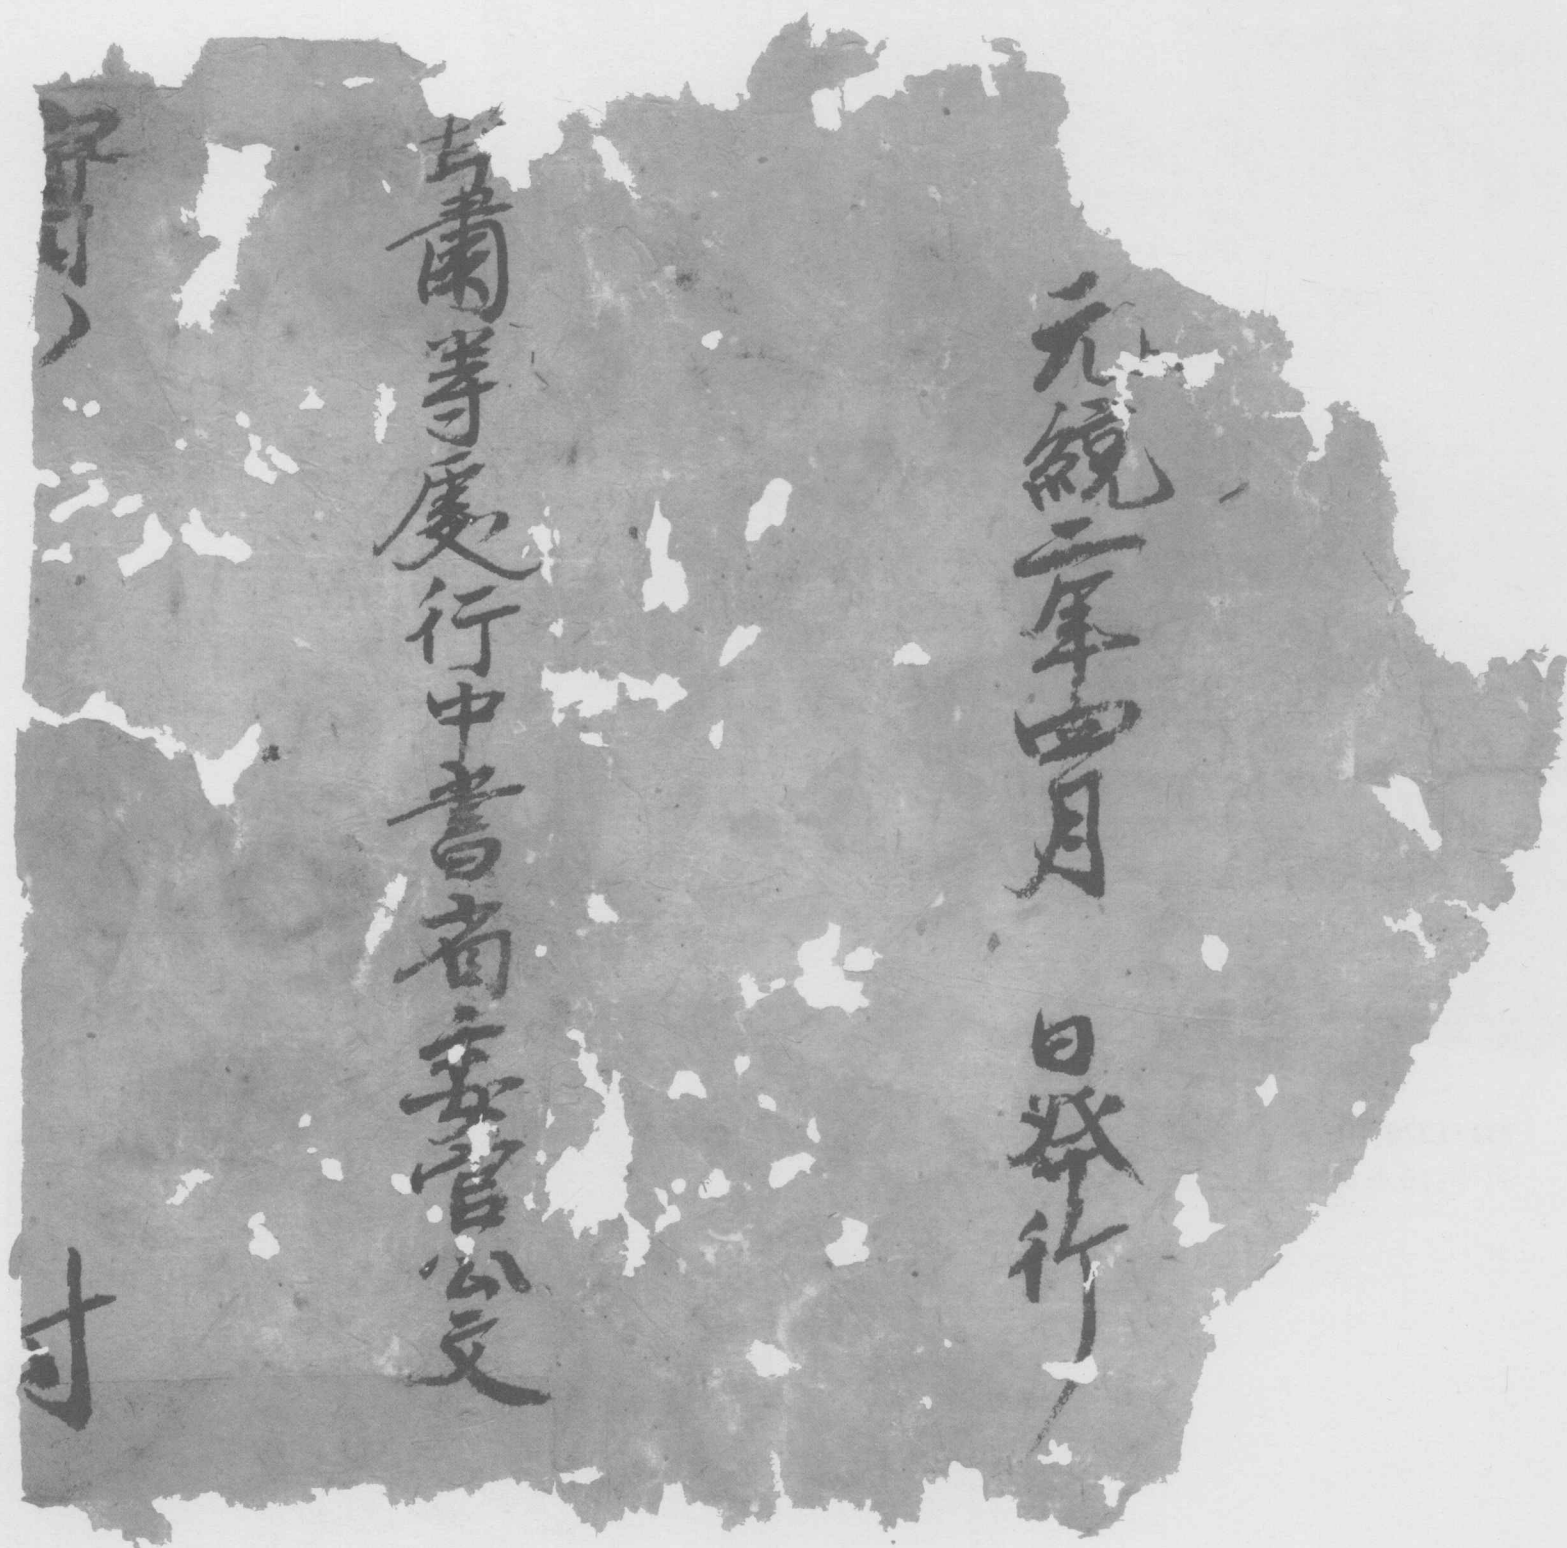 元統二年四月　日發行
甘肅等處行中書省委官公文